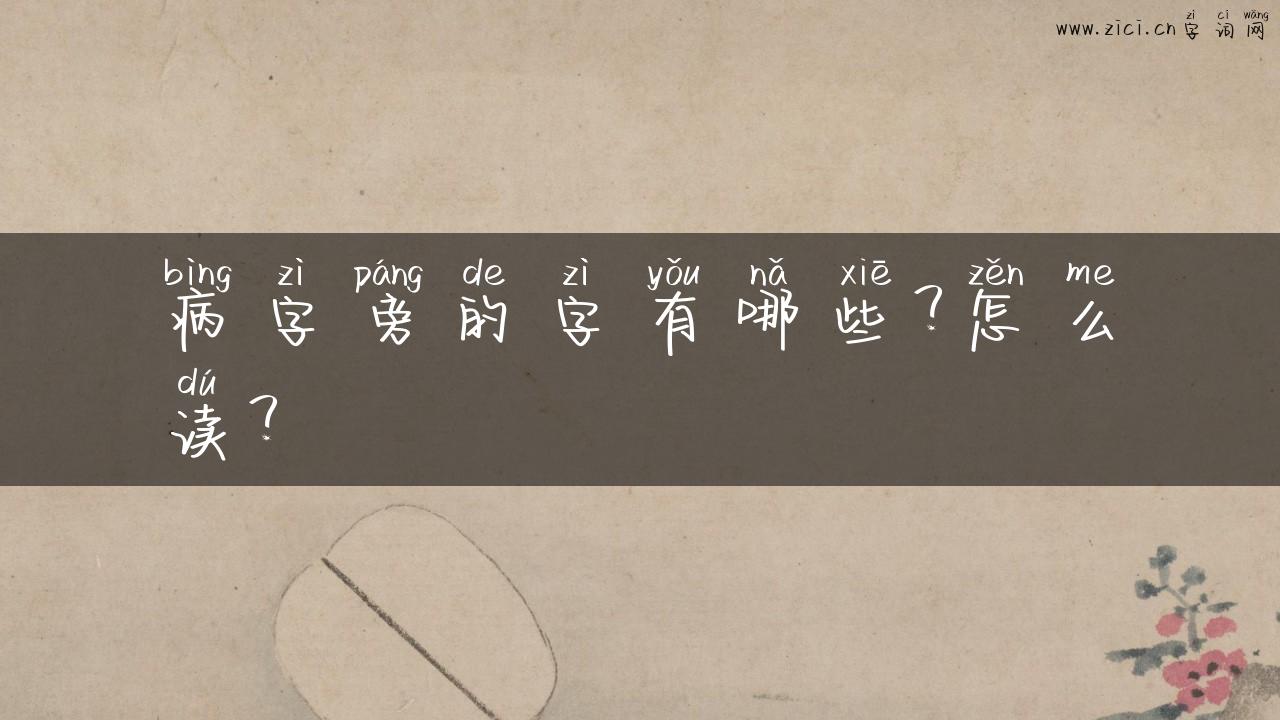 zì cí wǎng
www.zici.cn字词网
bìng zì páng de zì yǒu nǎ xiē zěn me
病字旁的字有哪些？怎么
dú
读？